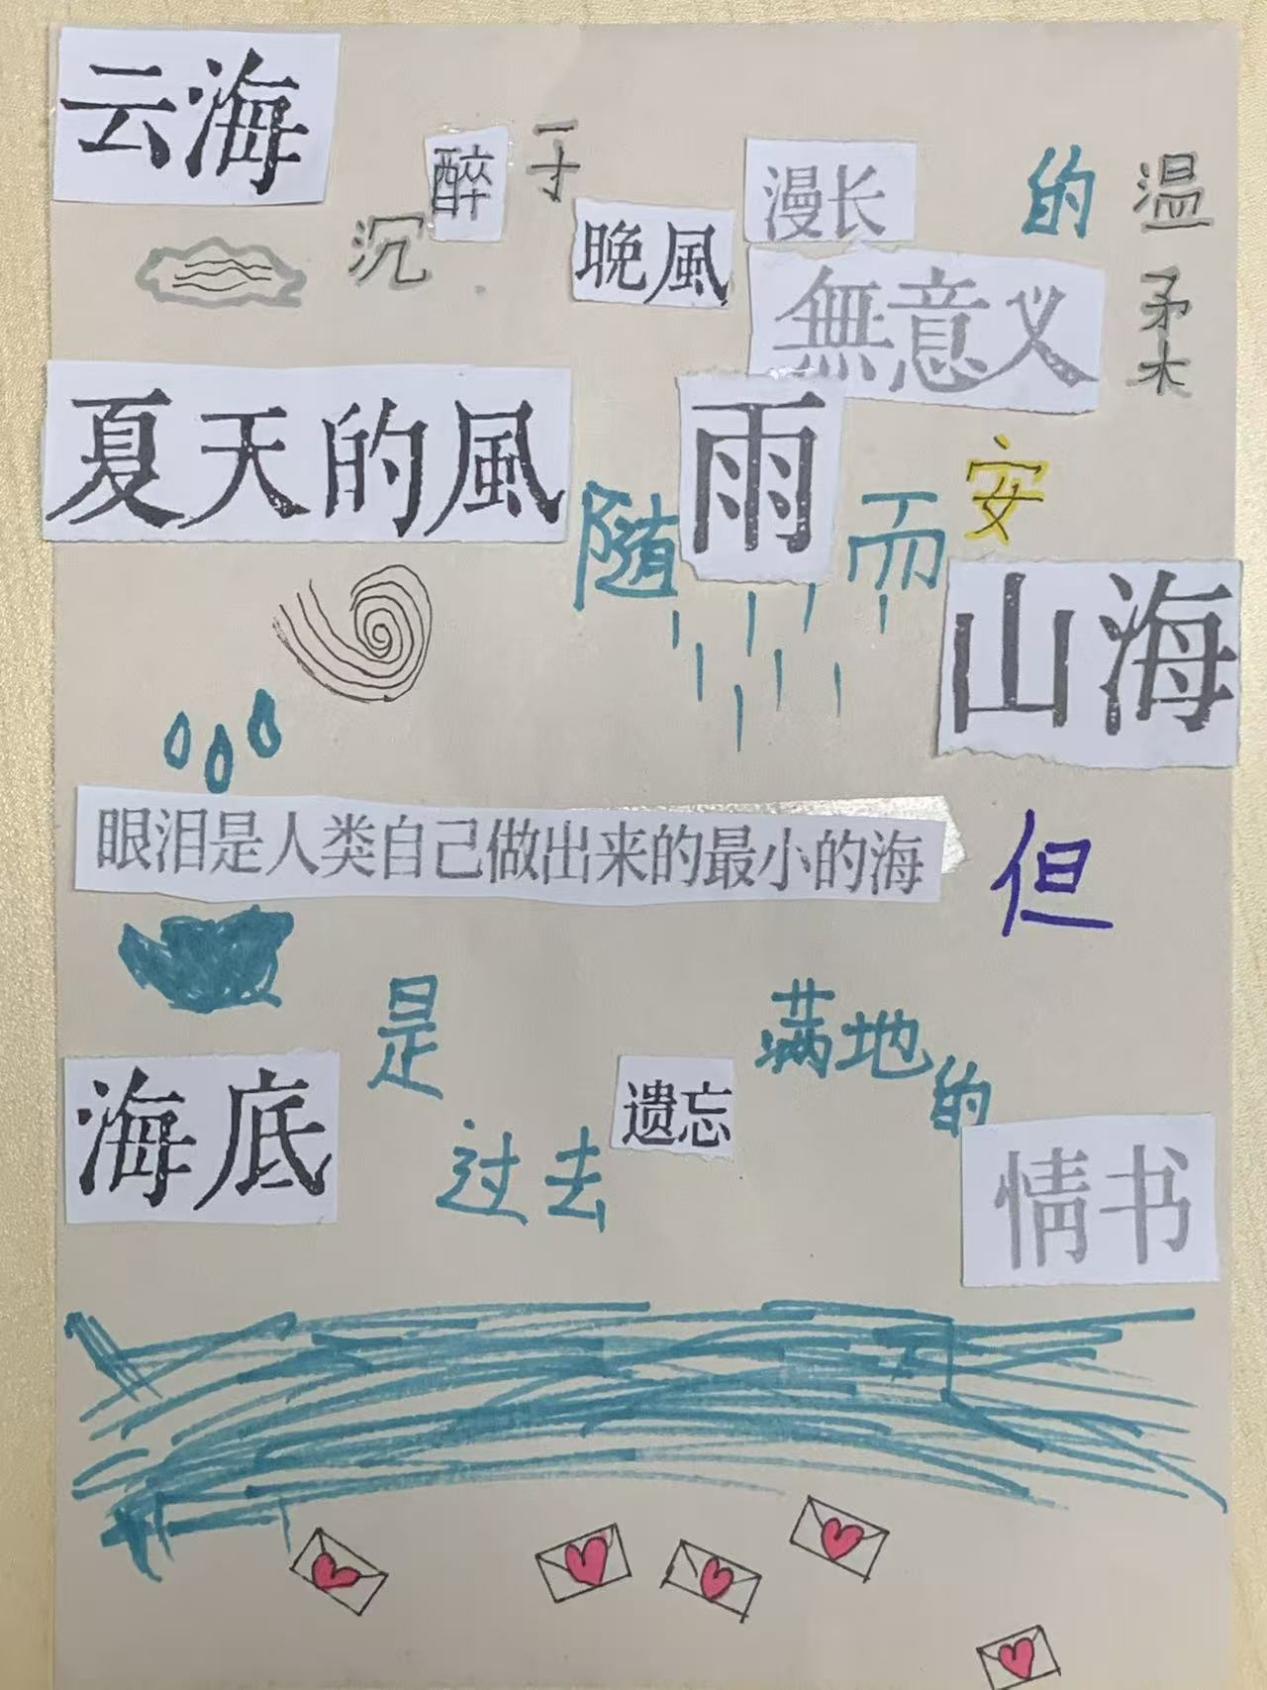 云海沉醉于晚風漫长無意义的温柔
夏天的風随雨而安山海
眼泪是人类自己做出来的最小的海但
海底是过去遗忘满地的情书